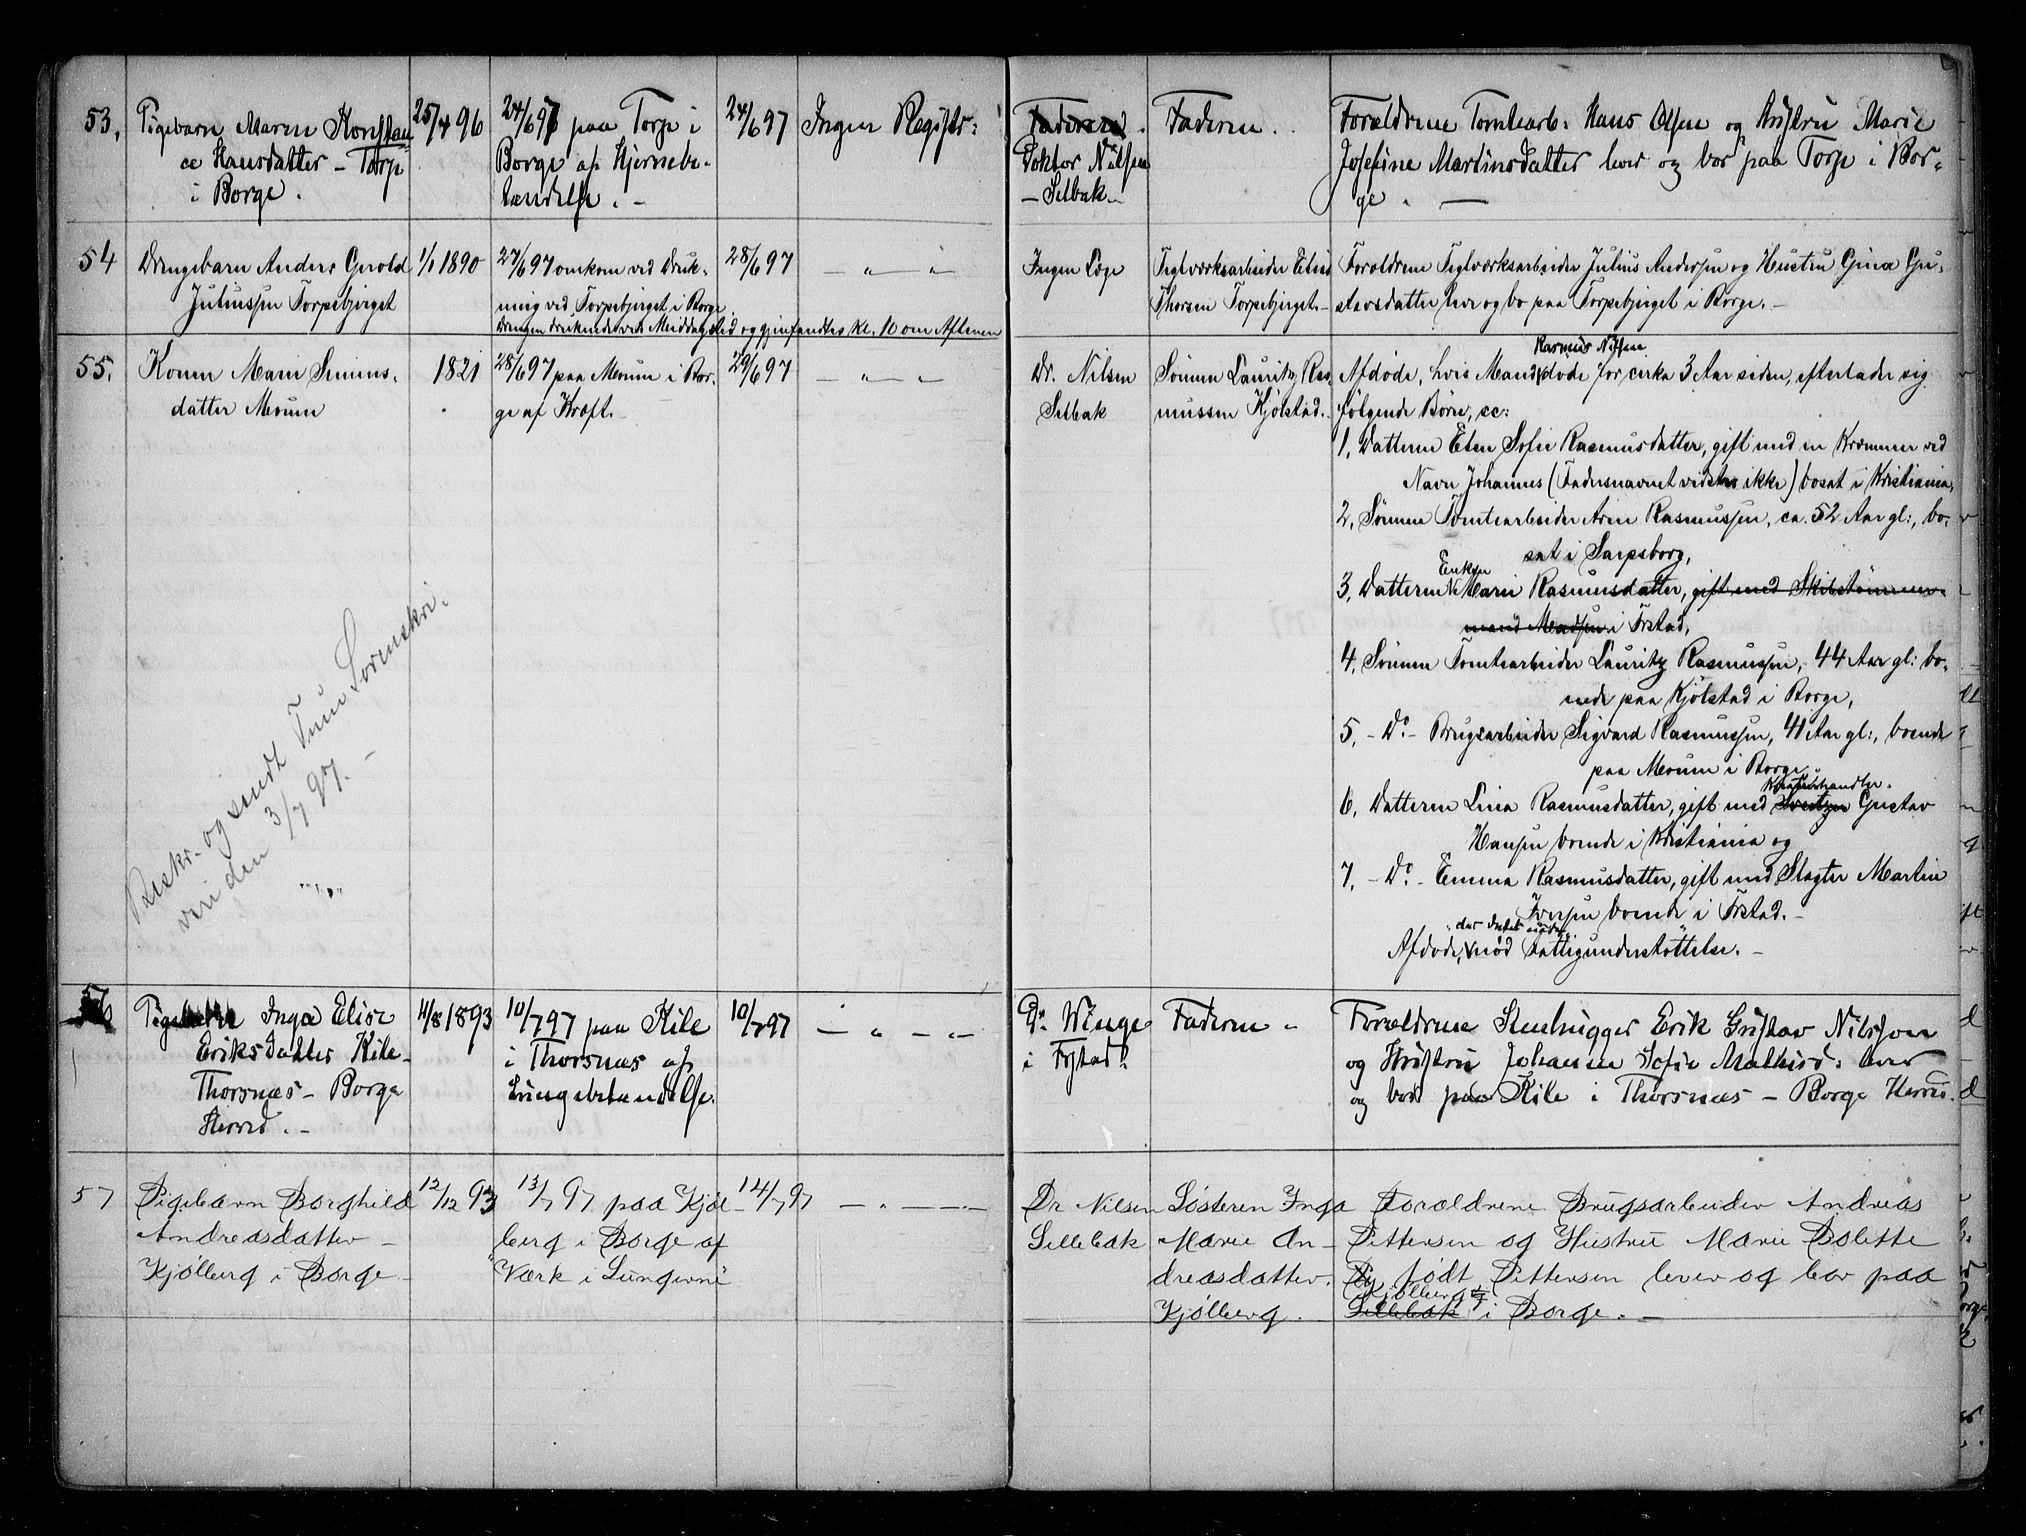 53. Pigebarn Maren Konstan
ce Hansdatter – Torp
i Borge.
25/4 96
24/6 97 paa Torp i
Borge af Hjernebe-
tændelse. –
24/6 97
Ingen Registr:
Faderen.
Doktor Nilsen
– Selbak –
Faderen.
Forældrene Tomtearb: Hans Olsen og Hustru Marie
Josefine Martinsdatter lever og bor paa Torp i Bor-
ge. —
54 Drengebarn Anders Gerold
Juliussen Torpebjerget
1/1 1890
27/6 97 omkom ved Druk-
ning ved Torpebjerget i Borge.
Drengen druknede ved Middagstid og gjenfandtes kl. 10 om Aftenen
28/6 97
— „ „
Ingen Læge
Teglværksarbeider
Thorsen Torpebjerget. –
Forældrene Teglværksarbeider Julius Andersen og Hustru Gina Gu-
stavsdatter lever og bo paa Torpebjerget i Borge. –
55. Konen Marie Simens-
datter Moum
1821
28/6 97 paa Moum i Bor-
ge af Kræft. –
29/6 97
— „ —
Dr. Nilsen
Selbak
Sønnen Lauritz Ras
mussen Kjølstad.
Rasmus Nilsen
Afdøde, hvis Mand døde for cirka 3 Aar siden, efterlader sig
følgende Børn, sc:
1, Datteren Elen Sofie Rasmusdatter, gift med en Kræmmer ved
Navn Johannes (Fadersnavnet vidstes ikke) bosat i Kristiania,
2, Sønnen Tomtearbeider Arne Rasmussen, ca. 52 Aar gl:, bo-
sat i Sarpsborg,
Enken
3, Datteren Marie Rasmusdatter, gift med Skibstømmer-
mand Madsen i Frstad,
4, Sønnen Tomtearbeider Lauritz Rasmussen, 44 Aar gl: bo-
ende paa Kjølstad i Borge,
5, – Do – Brugsarbeider Sigvard Rasmussen, 41 Aar gl:, boende
paa Moum i Borge
6, Datteren Lina Rasmusdatter, gift med Gustav
Hansen boende i Kristiania og
7, – Do. – Emma Rasmusdatter, gift med Slagter Martin
Iversen boende i Frstad. –
Afdøde, nød Fattigunderstøttelse. –
Beskr. og sendt Tune Sorenskri-
veri den 3/7 97. –
56 Inga Elise
Eriksdatter Kile –
Thorsnæs – Borge
Herred. –
11/8 1893
10/7 97 paa Kile
i Thorsnæs af
Lungebetændelse.
10/7 97
— „ — „ —
Dr. Winge
i Frstad.
Faderen –
Forældrene Stenhugger Erik Gustav Nilsson
og Hustru Johanne Sofie Mathisd: lever
og bor paa Kile i Thorsnæs – Borge Herred.
57 Pigebarn Borghild
Andreasdatter –
Kjølberg i Borge –
12/12 93
13/7 97 paa Kjøl-
berg i Borge af
Værk i Lungerne
14/7 97
— „ — —
Dr Nilsen
Sellebak
Søsteren Inga
Marie An-
dreasdatter.
Kjølberg. –
Forældrene Brugsarbeider Andreas
Pettersen og Hustru Marie Bolette
født Pettersen lever og bor paa
Kjølberg
Sellebak i Borge. –